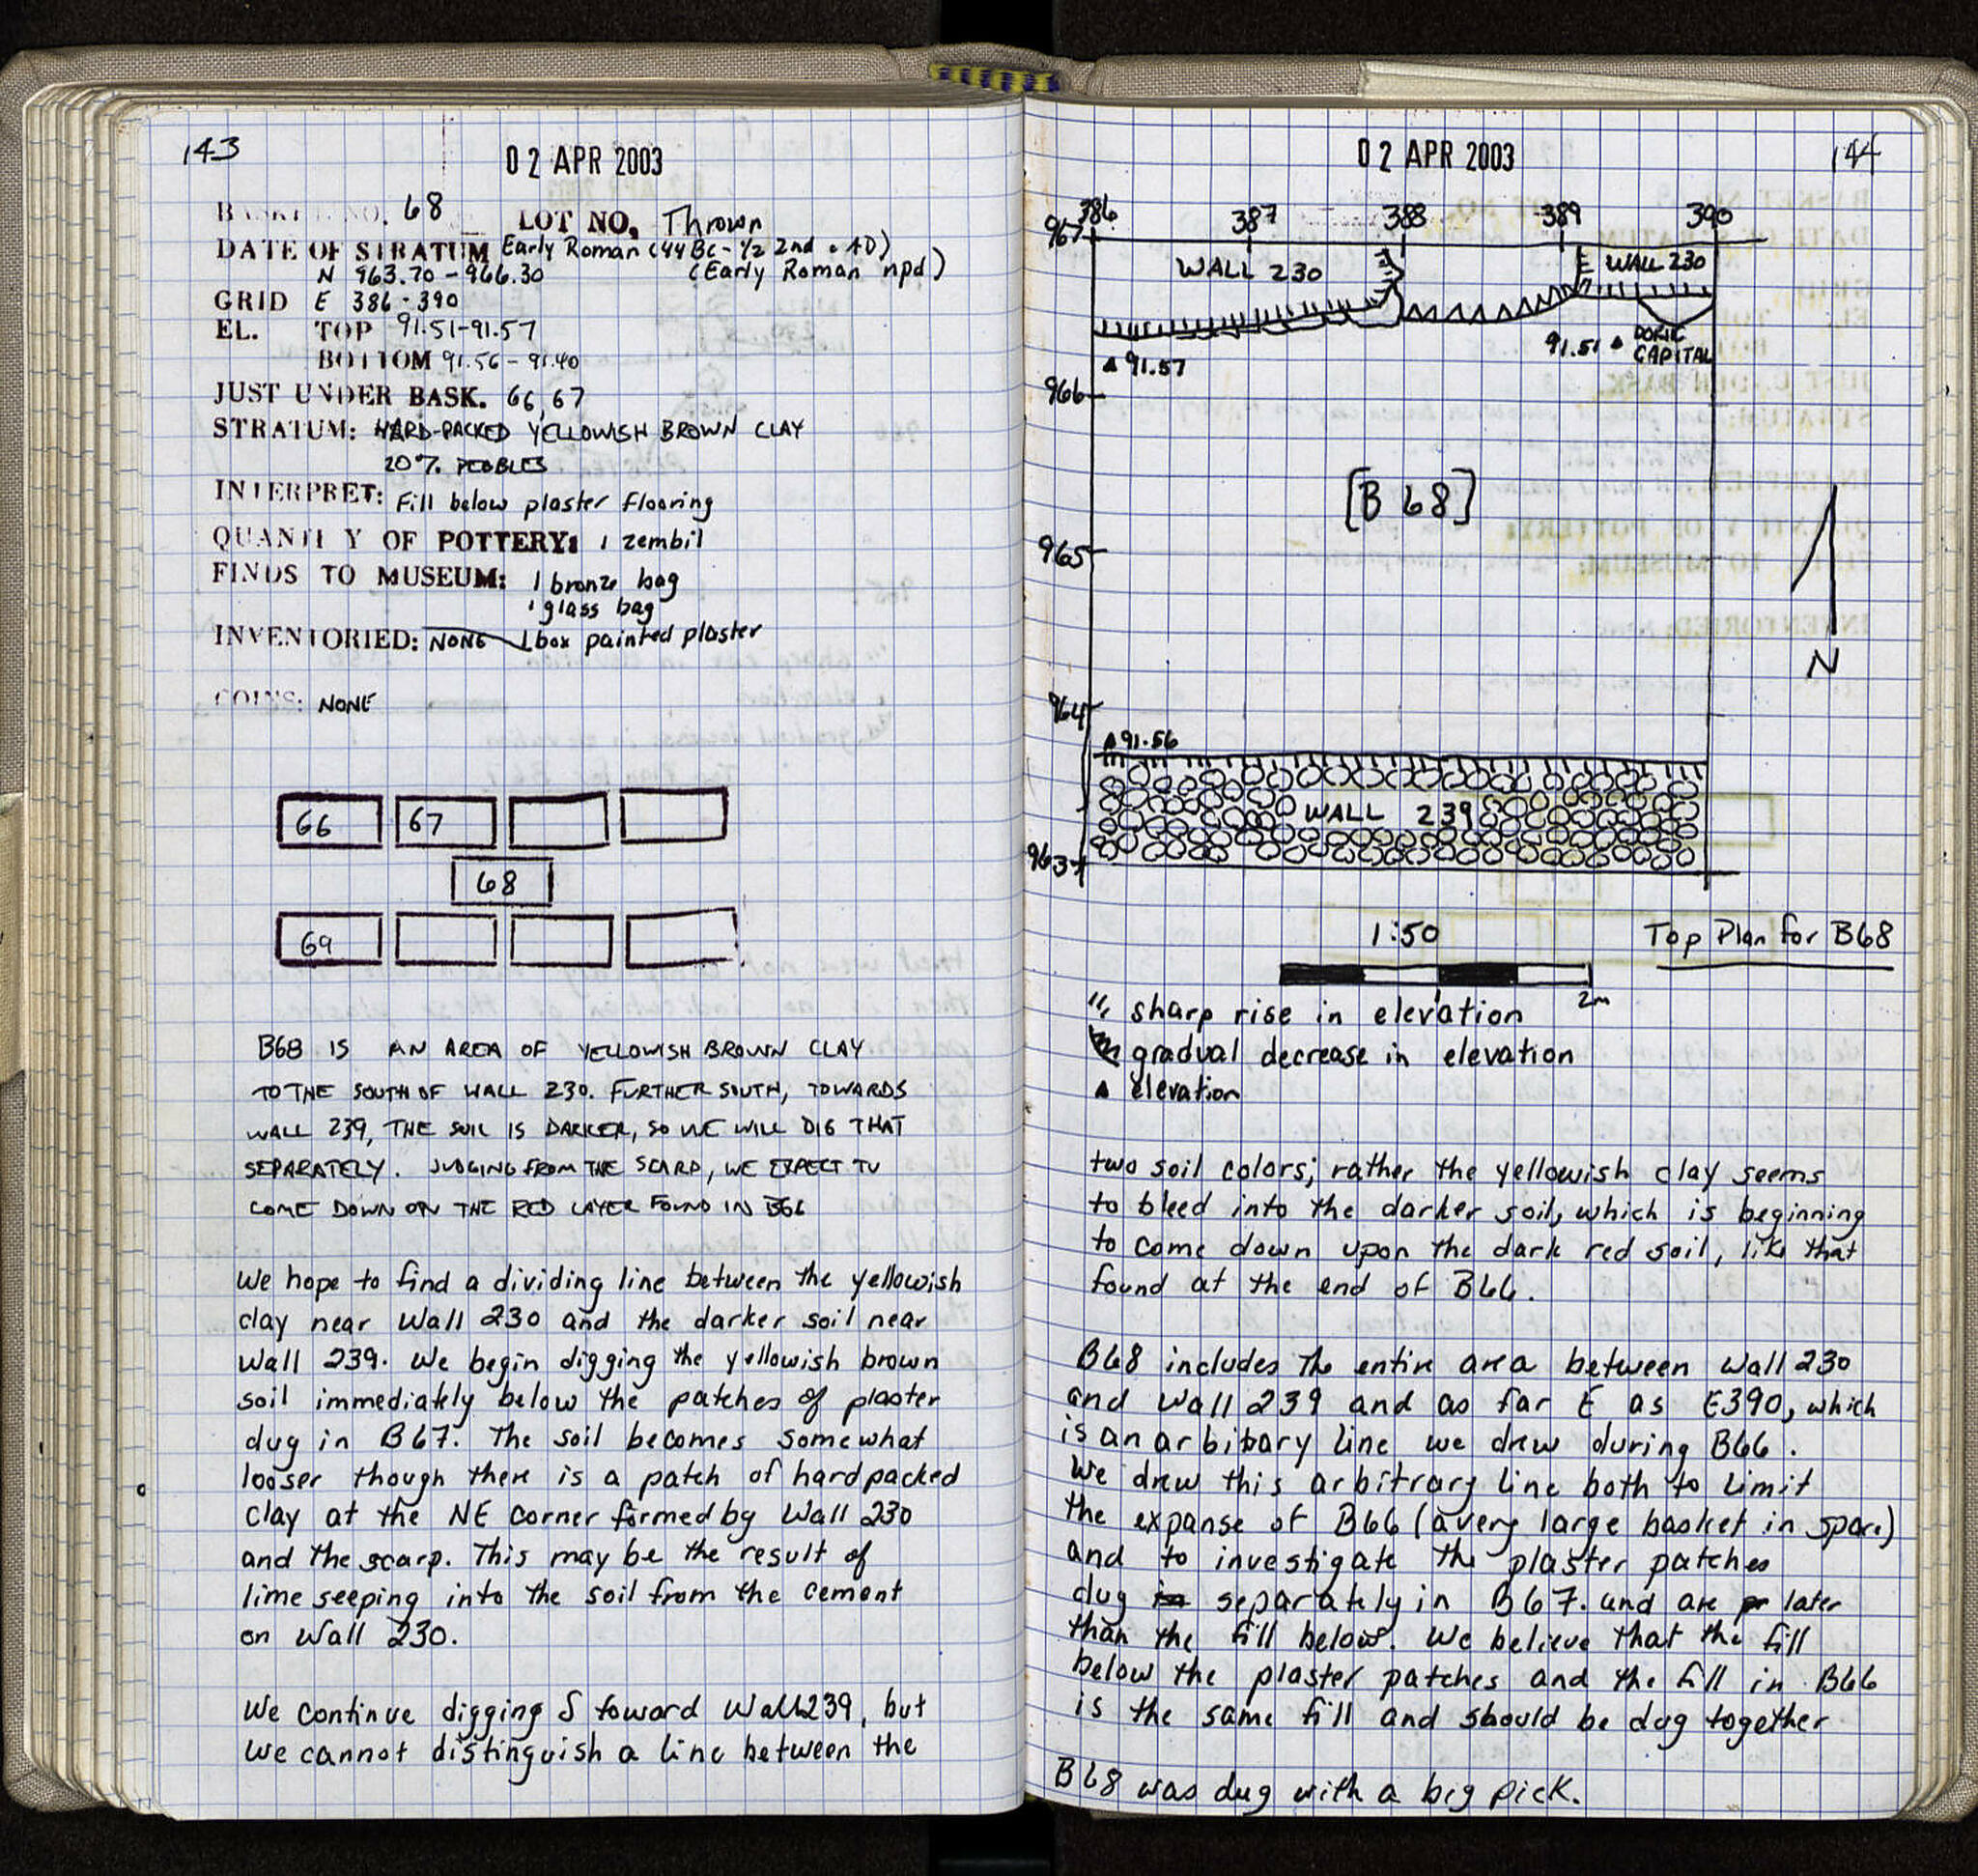 143
02 APR 2003
BASKET NO. 68 LOT NO. Thrown
DATE OF STRATUM Early Roman (44 BC - 1/2 2nd c AD)
N 963.70-966.30 (Early Roman npd)
GRID E 386-390
EL. TOP 91.51-91.57
BOTTOM 91.56-91.40
JUST UNDER BASK. 66,67
STRATUM: HARD-PACKED YELLOWISH BROWN CLAY
20% PEBBLES
INTERPRET: Fill below plaster flooring
QUANTITY OF POTTERY: 1 zembil
FINDS TO MUSEUM: 1 bronze bag
1 glass bag
INVENTORIED: NONE 1 box painted plaster
COINS: NONE
66 67
68
69
B68 IS AN AREA OF YELLOWISH BROWN CLAY
TO THE SOUTH OF WALL 230. FURTHER SOUTH, TOWARDS
WALL 239, THE SOIL IS DARKER, SO WE WILL DIG THAT
SEPARATELY. JUDGING FROM THE SCARP, WE EXPECT TO
COME DOWN ON THE RED LAYER FOUND IN B66
We hope to find a dividing line between the yellowish
clay near Wall 230 and the darker soil near
Wall 239. We begin digging the yellowish brown
soil immediately below the patches of plaster
dug in B67. The soil becomes somewhat
looser though there is a patch of hardpacked
clay at the NE corner formed by Wall 230
and the scarp. This may be the result of
lime seeping into the soil from the cement
on Wall 230.
We continue digging S toward Wall 239, but
we cannot distinguish a line between the
02 APR 2003
144
386 387 388 389 390
967
WALL 230
WALL 230
91.57
91.51
DORIC
CAPITAL
966
[B 68]
965
N
964
91.56
WALL 239
963
1:50
Top Plan for B68
2m
sharp rise in elevation
gradual decrease in elevation
elevation
two soil colors; rather the yellowish clay seems
to bleed into the darker soil, which is beginning
to come down upon the dark red soil, like that
found at the end of B66.
B68 includes the entire area between Wall 230
and Wall 239 and as far E as E390, which
is an arbitrary line we drew during B66.
We drew this arbitrary line both to limit
the expanse of B66 (a very large basket in space)
and to investigate the plaster patches
dug in separately in B67. and are pr later
than the fill below. We believe that the fill
below the plaster patches and the fill in B66
is the same fill and should be dug together
B68 was dug with a big pick.